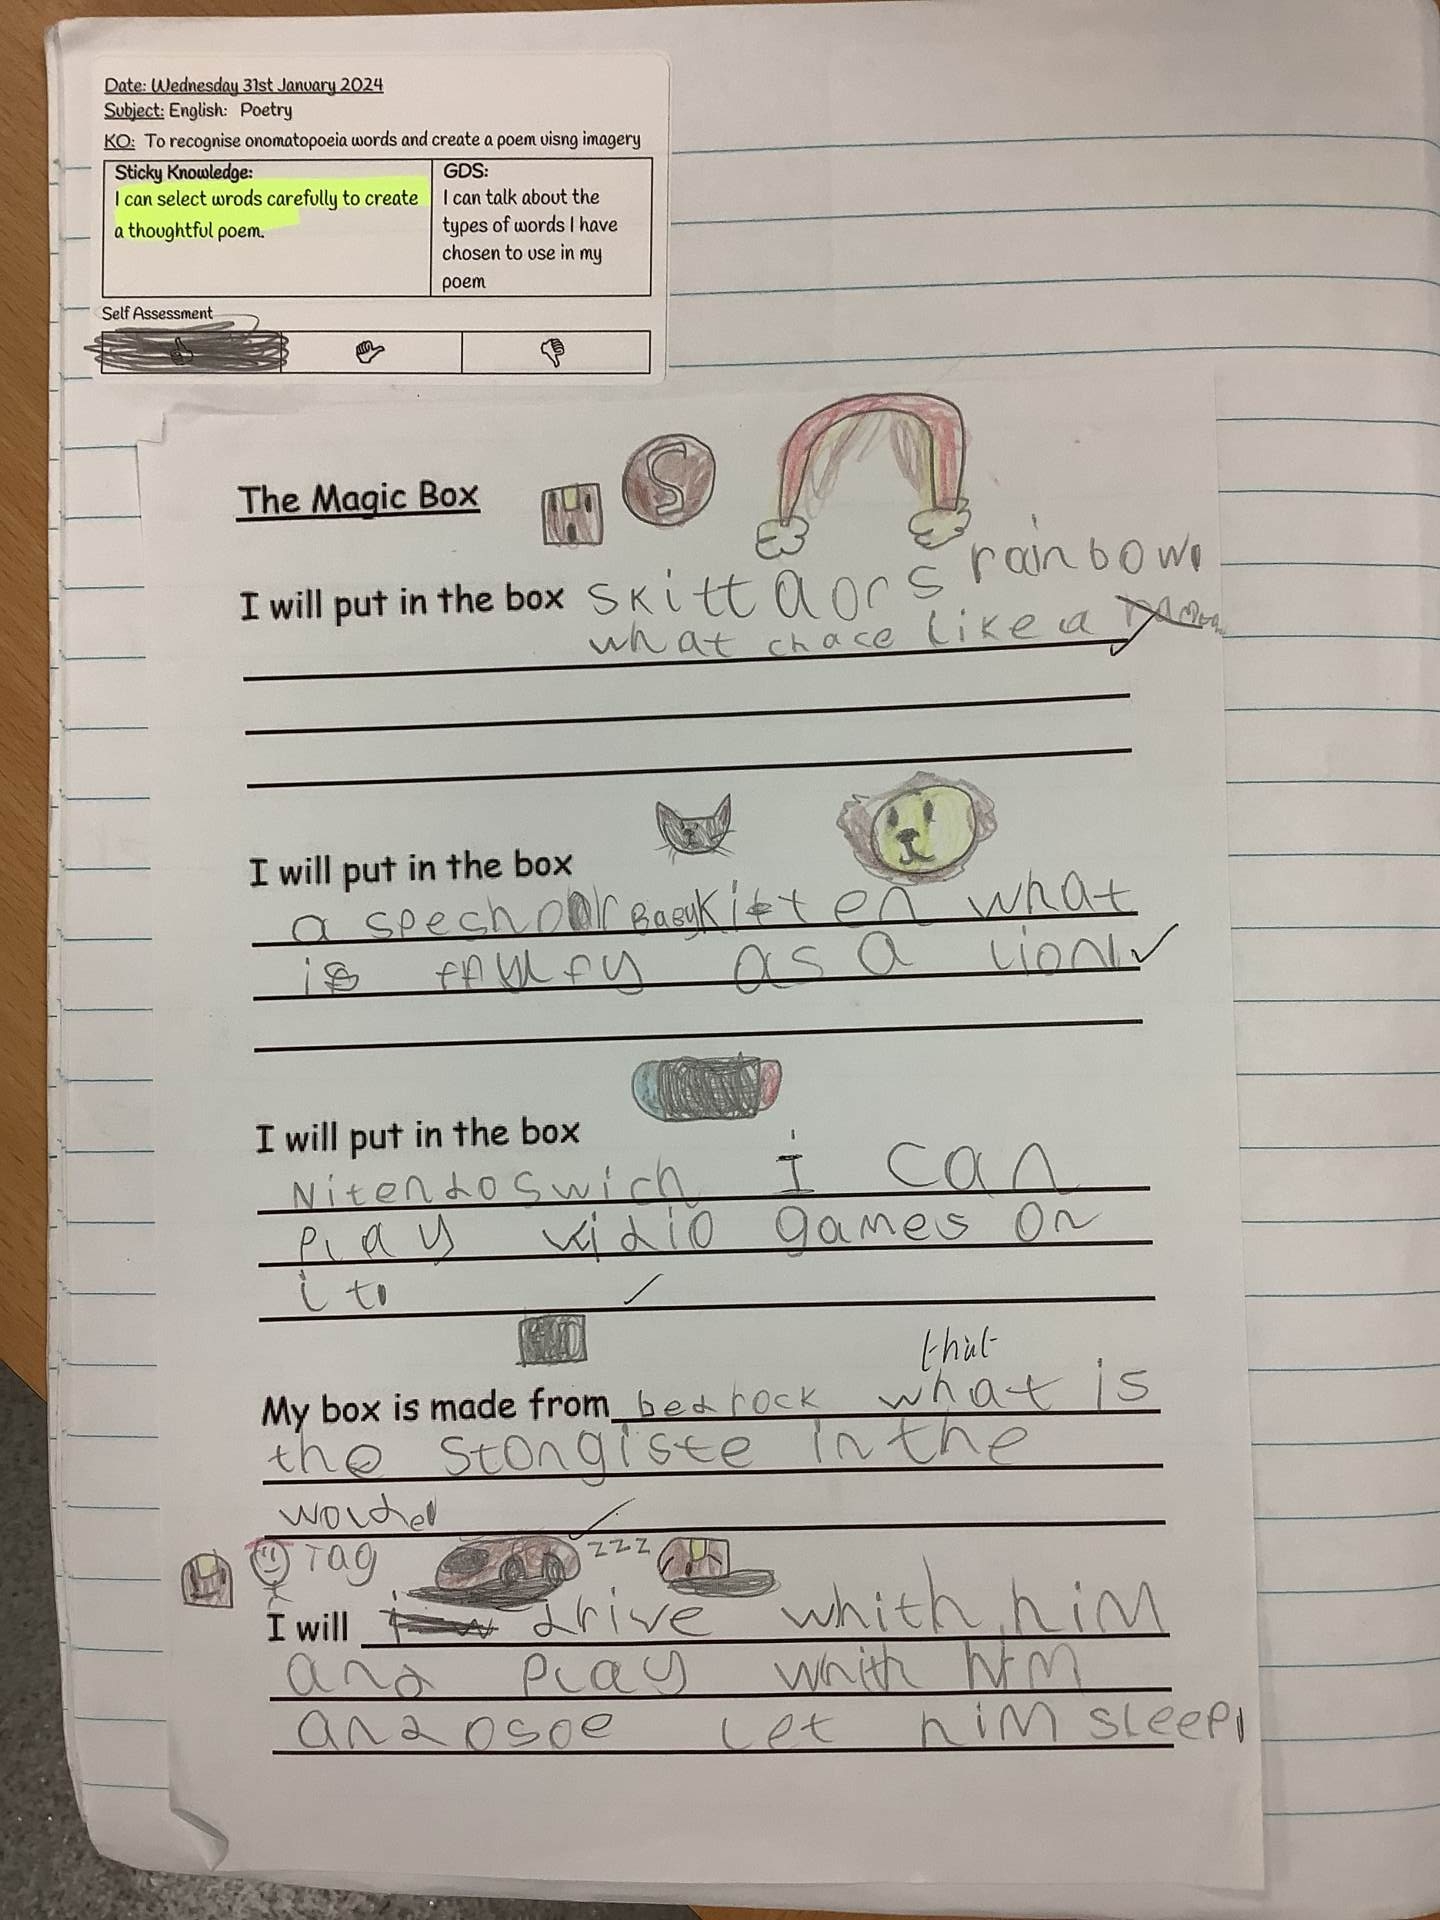 Date: Wednesday 31st January 2024
Subject: English: Poetry
KO: To recognise onomatopoeia words and create a poem uisng imagery
Sticky Knowledge:
I can select wrods carefully to create
a thoughtful poem.
GDS:
I can talk about the
types of words I have
chosen to use in my
poem
Self Assessment
The Magic Box
S
I will put in the box skittaors rainbow
what chace like a
I will put in the box
a spechoolr Baby kitten what
is as a lion
I will put in the box
Nitendo swich I can
play vidio games on
it
that
My box is made from bedrock what is
the stongiste in the
wolde
Tag
zzz
I will drive whith him
and play whith him
and osoe let him sleep